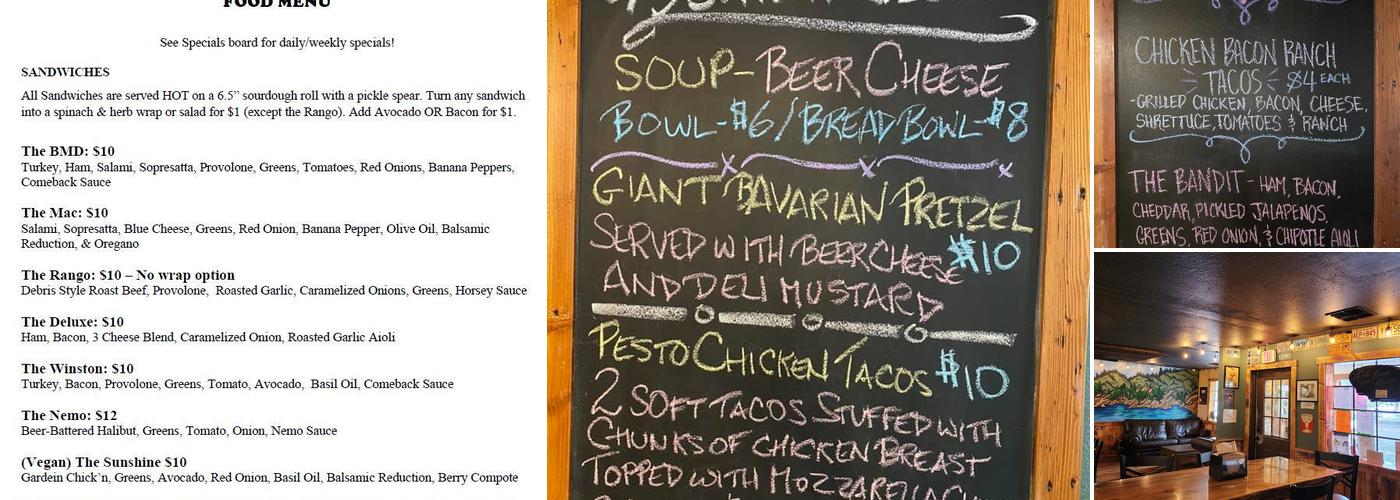 FOOD MENU
See Specials board for daily/weekly specials!
SANDWICHES
All Sandwiches are served HOT on a 6.5” sourdough roll with a pickle spear. Turn any sandwich
into a spinach & herb wrap or salad for $1 (except the Rango). Add Avocado OR Bacon for $1.
The BMD: $10
Turkey, Ham, Salami, Sopresatta, Provolone, Greens, Tomatoes, Red Onions, Banana Peppers,
Comeback Sauce
The Mac: $10
Salami, Sopresatta, Blue Cheese, Greens, Red Onion, Banana Pepper, Olive Oil, Balsamic
Reduction, & Oregano
The Rango: $10 – No wrap option
Debris Style Roast Beef, Provolone, Roasted Garlic, Caramelized Onions, Greens, Horsey Sauce
The Deluxe: $10
Ham, Bacon, 3 Cheese Blend, Caramelized Onion, Roasted Garlic Aioli
The Winston: $10
Turkey, Bacon, Provolone, Greens, Tomato, Avocado, Basil Oil, Comeback Sauce
The Nemo: $12
Beer-Battered Halibut, Greens, Tomato, Onion, Nemo Sauce
(Vegan) The Sunshine $10
Gardein Chick’n, Greens, Avocado, Red Onion, Basil Oil, Balsamic Reduction, Berry Compote
SOUP- BEER CHEESE
BOWL-$6/BREAD BOWL-$8
GIANT BAVARIAN PRETZEL
SERVED WITH BEER CHEESE $10
AND DELI MUSTARD
PESTO CHICKEN TACOS $10
2 SOFT TACOS STUFFED WITH
CHUNKS OF CHICKEN BREAST
TOPPED WITH MOZZARELLA
CHICKEN BACON RANCH
TACOS $4 EACH
-GRILLED CHICKEN, BACON, CHEESE,
SHRETTUCE, TOMATOES & RANCH
THE BANDIT - HAM, BACON,
CHEDDAR, PICKLED JALAPENOS,
GREENS, RED ONION, & CHIPOTLE AIOLI